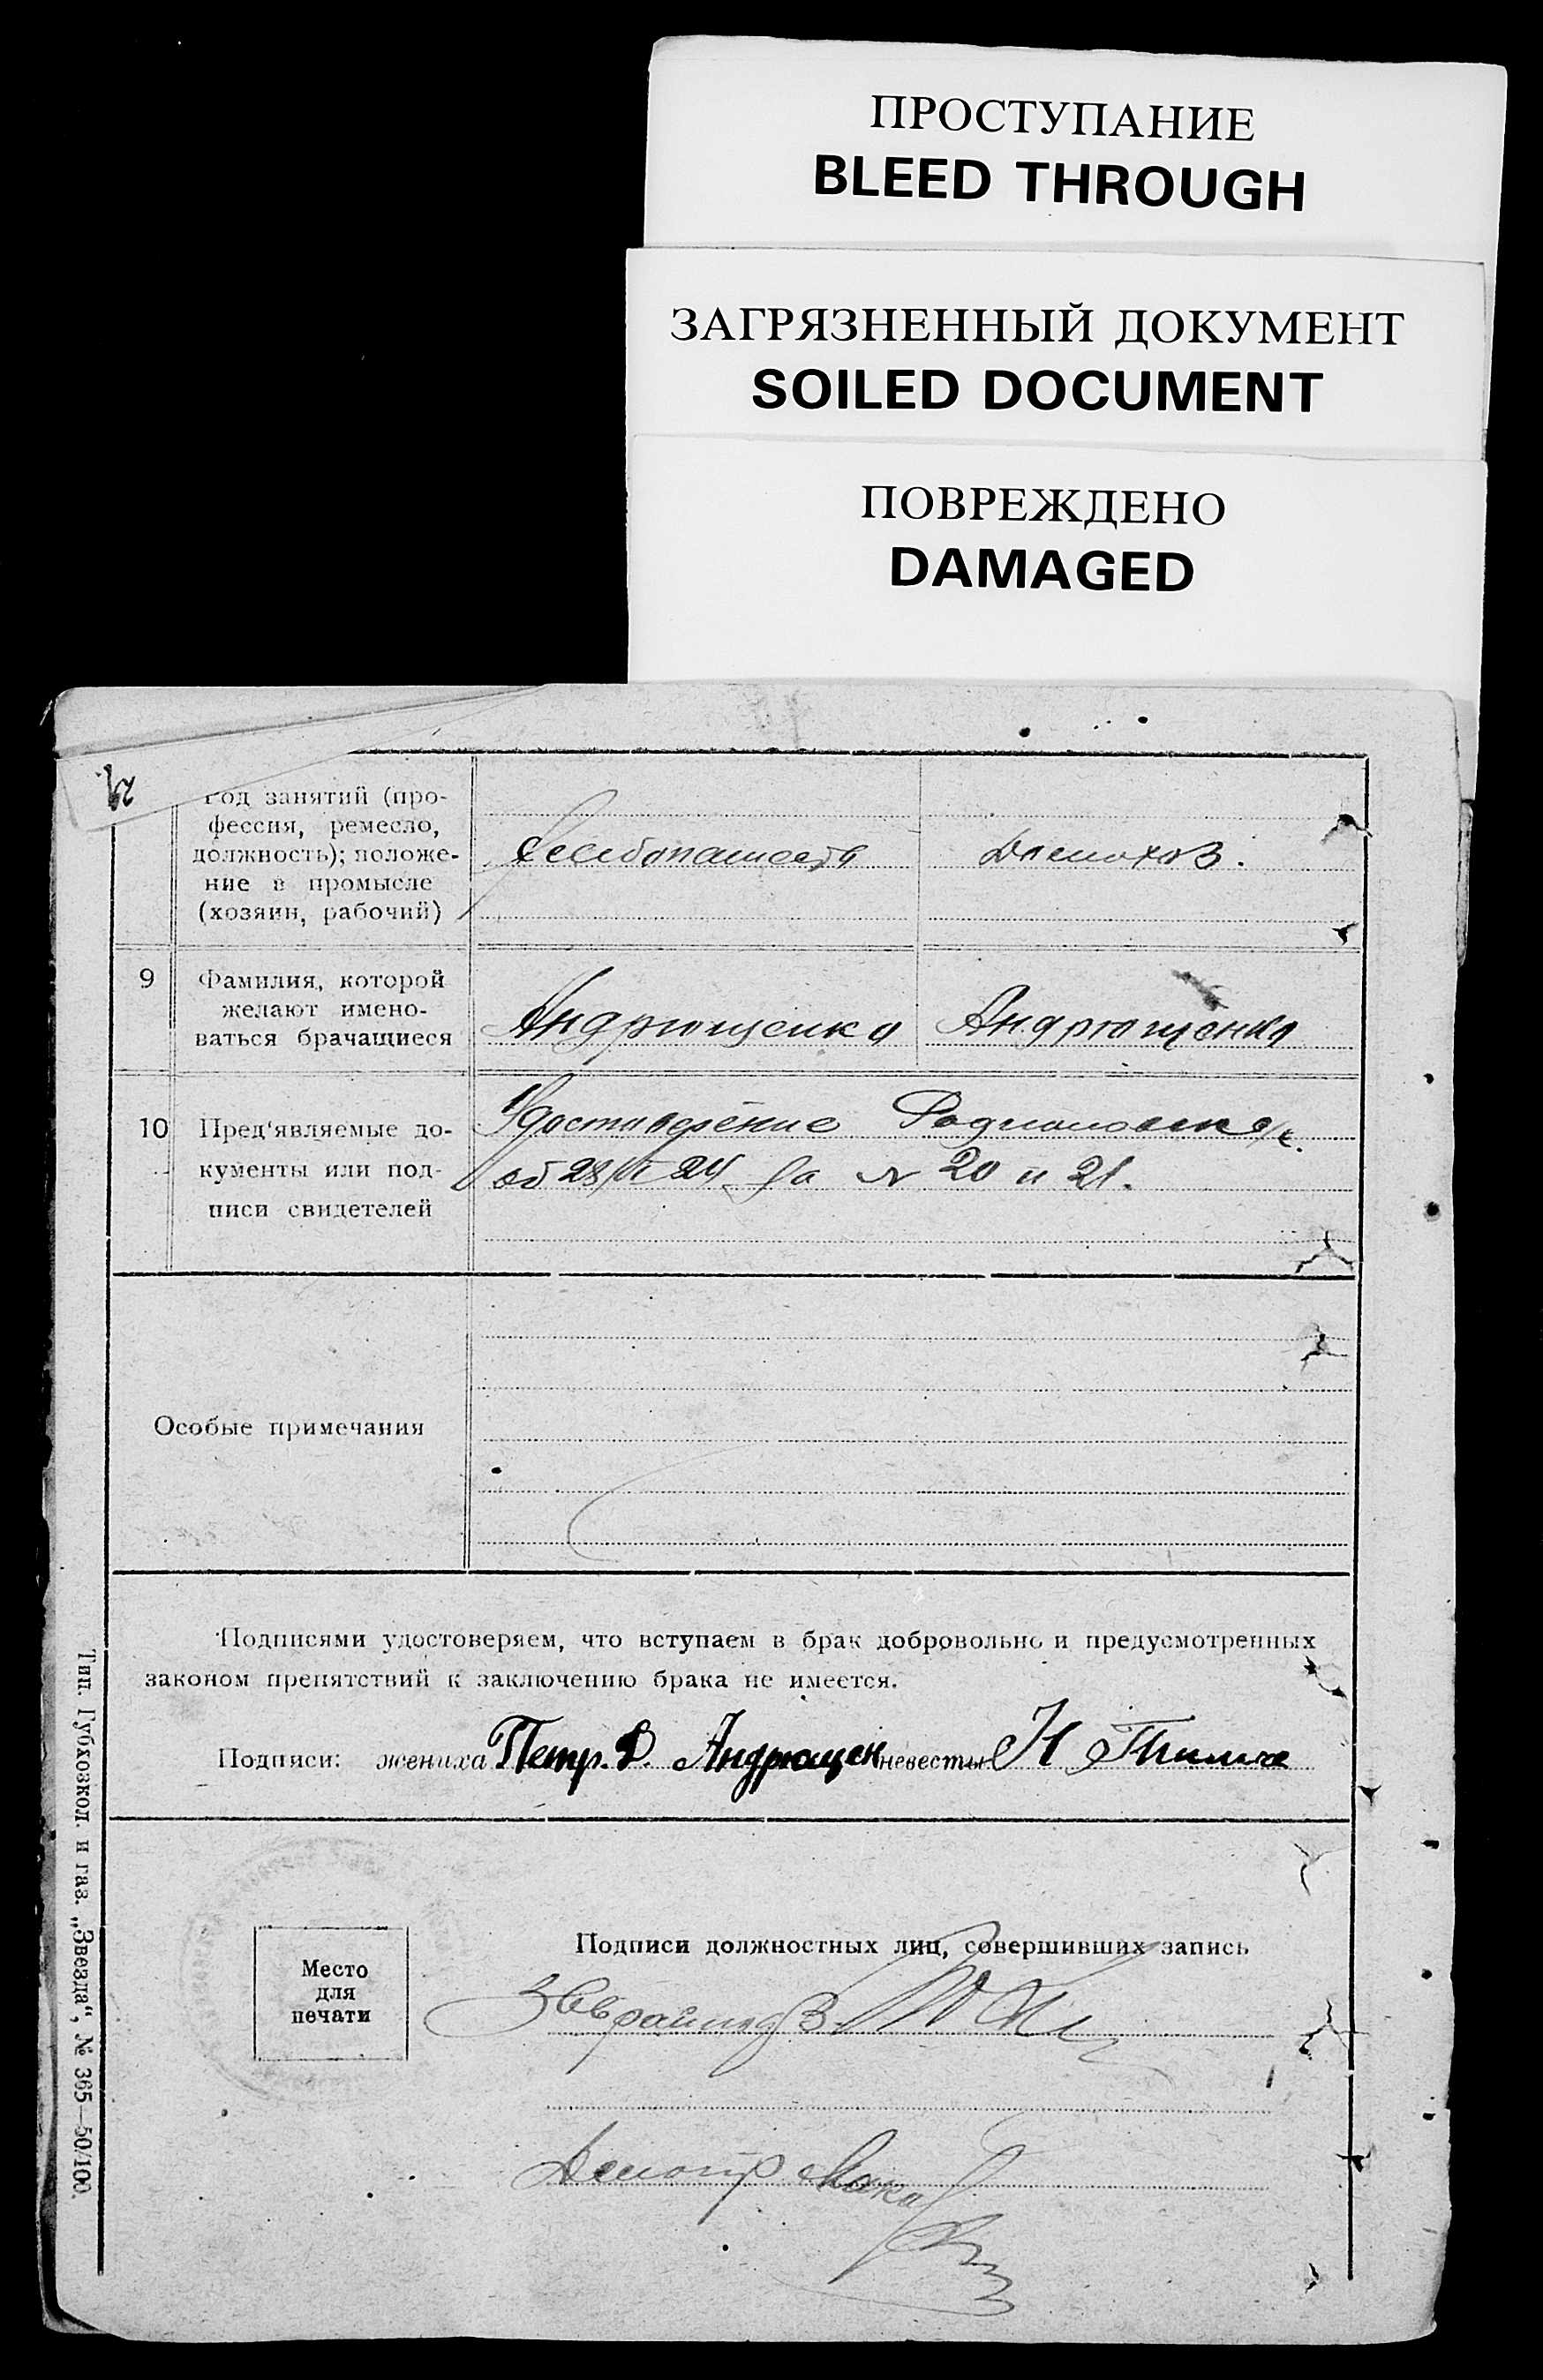 ПРОСТУПАНИЕ
BLEED THROUGH
ЗАГРЯЗНЕННЫЙ ДОКУМЕНТ
SOILED DOCUMENT
ПОВРЕЖДЕНО
DAMAGED
Род занятий (про-
фессия, ремесло,
должность); положе-
ние в промысле
(хозяин, рабочий)
Хлебопашест
Домохоз.
9
Фамилия, которой
желают имено-
ваться брачащиеся
Андрющенко
Андрющенко
10
Пред'являемые до-
кументы или под-
писи свидетелей
Удостоверение
от 28/ 24 за № 20 и 21.
Особые примечания
Подписями удостоверяем, что вступаем в брак добровольно и предусмотренных
законом препятствий к заключению брака не имеется.
Подписи: жениха Петр. Андрющен невесты Н
Место
для
печати
Подписи должностных лиц, совершивших запись
Тип. Губхозкол. и газ. „Звезда", № 365—50/100.